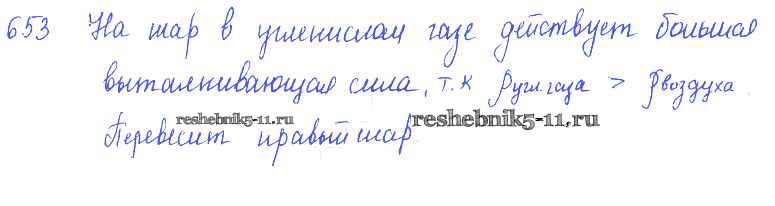 653 На шар в углекислом газе действует большая
выталкивающая сила, т.к ρугл.газа > ρвоздуха
reshebnik5-11.ru reshebnik5-11.ru
Перевесит правый шар